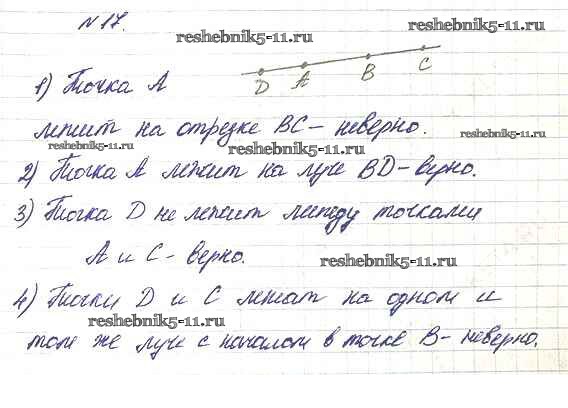 № 17.
reshebnik5-11.ru
reshebnik5-11.ru
D A B C
1) Точка А
лежит на отрезке ВС - неверно.
reshebnik5-11.ru
reshebnik5-11.ru
reshebnik5-11.ru
2) Точка А лежит на луче BD - верно.
3) Точка D не лежит между точками
А и С - верно.
reshebnik5-11.ru
4) Точки D и С лежат на одном и
reshebnik5-11.ru
том же луче с началом в точке В - неверно.